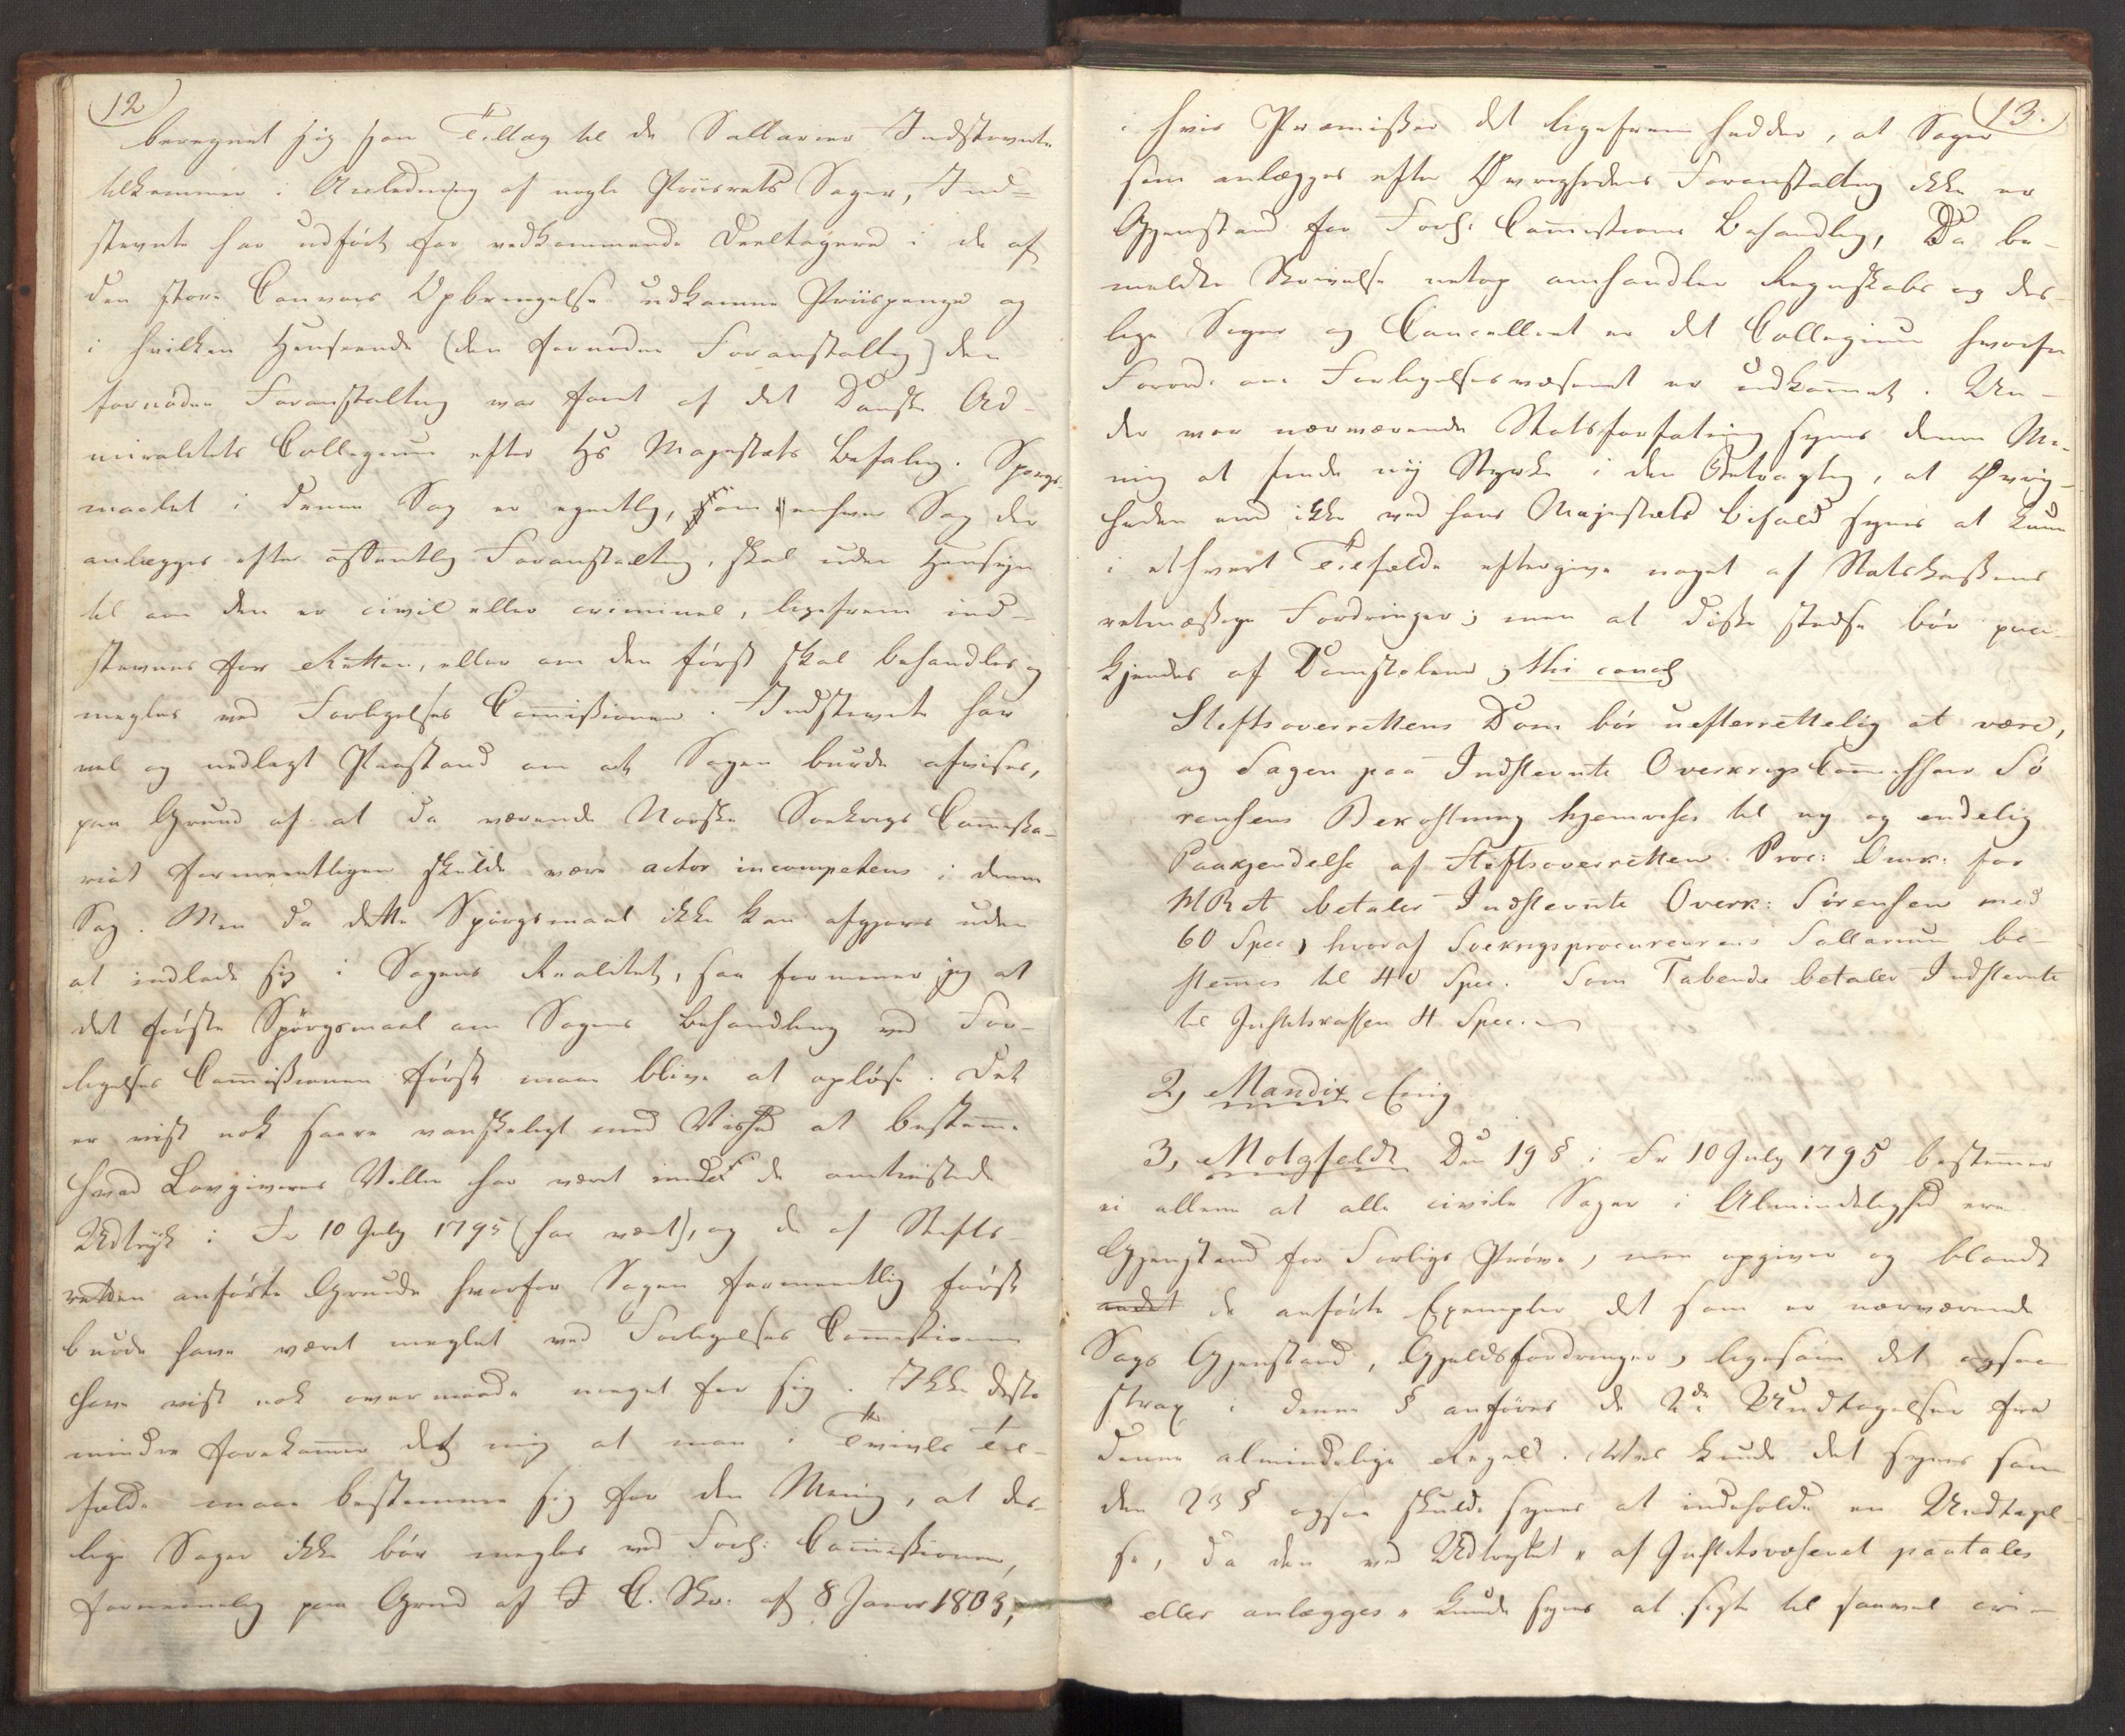 12
beregnet sig som Tillæg til de Sallarier Indstevnte
tilkommer i Anledning af nogle Priisrets Sager, Ind-
stevnte har udført for vedkommende Deeltagere i de af
den store Convois Opbringelse udkomne Priispenge og
i hvilken Henseende (den fornødne Foranstaltng) den
fornødne Foranstaltng var föiet af det Danske Ad-
miralitets Collegium efter Hs Majestæts Befalng. Spörgs-
maalet i denne Sag er egentlig, som enhver Sag der
anlægges efter offentlig Foranstaltng, skal uden Hensyn
til om den er civil eller criminel, ligefrem ind-
stevnes for Retten, eller om den först skal behandles og
megles ved Forligelses Com̄issionen. Indstevnte har
vel og nedlagt Paastand om at Sagen burde afvises,
paa Grund af at da værende Norske Søekrigs Com̄issa-
riat formeentligen skulde være actor incompetens i denne
Sag. Men da dette Spörgsmaal ikke kan afgjøres uden
at indlade sig i Sagens Realitet, saa formener jeg at
det förste Spörgsmaal om Sagens Behandling ved For-
ligelses Com̄issionen först maae blive at oplöse. Det
er vist nok saare vanskeligt med Vished at bestem̄e
hvad Lovgiverens Villie har været under de omtvistede
Udtryk i Fr 10 July 1795 (har været), og de af Stifts-
retten anförte Grunde hvorfor Sagen formeentlig först
burde have været meglet ved Forligelses Com̄issionen
have vist nok overmaade meget for sig. Ikke desto
mindre forekom̄er det mig at man i Tvivls Til-
fælde maae bestemme sig for den Mening, at des-
lige Sager ikke bör megles ved Forl: Com̄issionen,
fornemmelig paa Grund af D. C. Skr. af 8 Janr 1803,
13.
i hvis Præmisser det ligefrem hedder, at Sager
som anlægges efter Øvrighedens Foranstaltng ikke er
Gjenstand for Forl: Com̄issions Behandlng, Da be-
meldte Skrivelse netop omhandler Regnskabs og des-
lige Sager og Cancelliet er det Collegium hvorfra
Forord. om Forligelsesvæsenet er udkom̄et. Un-
der vor nærværende Statsforfatning synes denne Me-
ning at finde ny Styrke i den Betragtng, at Øvrig-
heden end ikke ved hans Majestæts Bifald synes at kunne
i ethvert Tilfælde eftergive noget af Statskassens
retmæssige Fordringer; men at disse stedse bör paa-
kjendes af Domstolene; thi concl
Stiftsoverrettens Dom bör uefterrettelig at være,
og Sagen paa Indstevnte Overkrigs Com̄issair Sö
rensens Bekostning hjemvises til ny og endelig
Paakjendelse af Stiftsoverretten. Proc: Omk: for
HRet betaler Indstevnte Overk: Sörensen med
60 Spec, hvoraf Søekrigsprocureurens Sallarium be-
stem̄es til 40 Spec. Som Tabende betaler Indstevnte
til Justitskassen 4 Spec.
2, Mandix Enig
3, Motzfeldt Den 19 § i Fr 10 July 1795 bestem̄er
ei allene at alle civile Sager i Almindelighed ere
Gjenstand for Forligs Pröve, men opgiver og blandt
andet de anförte Exempler det som er nærværende
Sags Gjenstand, Gjældsfordringer, ligesom det ogsaa
strax i denne § anföres de 2de Undtagelser fra
denne almindelige Regel. Vel kunde det synes som
den 23 § ogsaa skulde synes at indeholde en Undtagel
se, da den ved Udtrykket "af Justitsvæsenet paatales
eller anlægges" kunde synes at sigte til saavel cri-